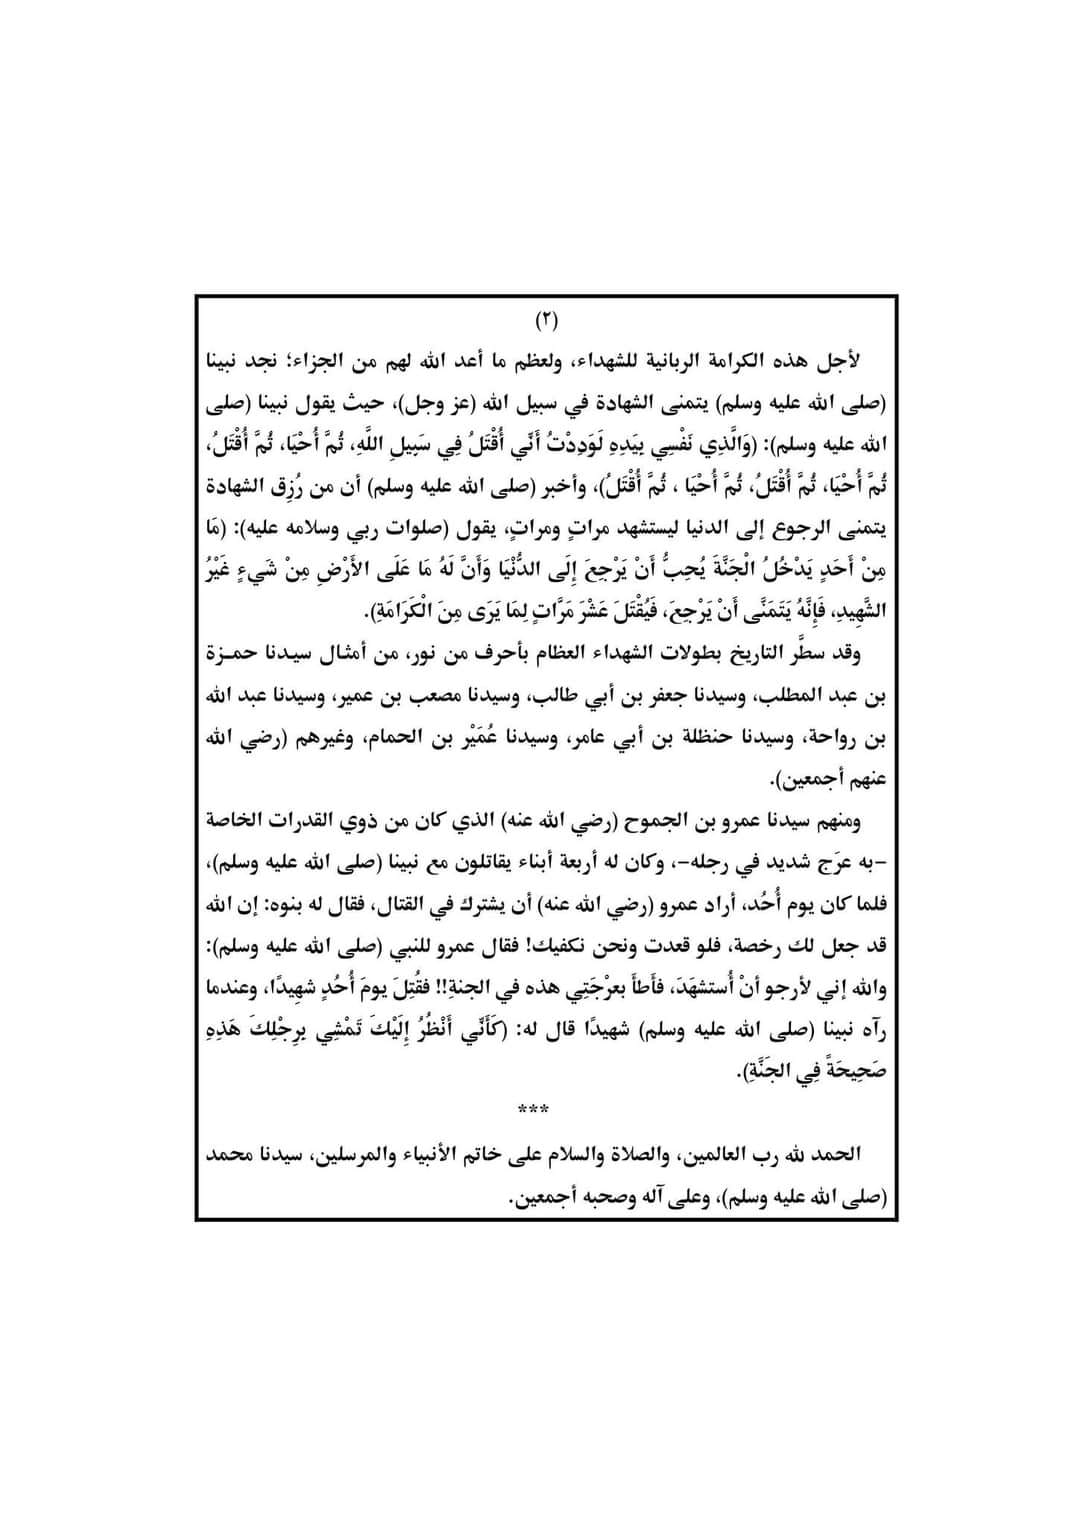 (٢)
لأجل هذه الكرامة الربانية للشهداء، ولعظم ما أعد الله لهم من الجزاء؛ نجد نبينا
(صلى الله عليه وسلم) يتمنى الشهادة في سبيل الله (عز وجل)، حيث يقول نبينا (صلى
الله عليه وسلم): (وَالَّذِي نَفْسِي بِيَدِهِ لَوَدِدْتُ أَنِّي أُقْتَلُ فِي سَبِيلِ اللَّهِ، ثُمَّ أُحْيَا، ثُمَّ أُقْتَلُ،
ثُمَّ أُحْيَا، ثُمَّ أُقْتَلُ، ثُمَّ أُحْيَا ، ثُمَّ أُقْتَلُ)، وأخبر (صلى الله عليه وسلم) أن من رُزِق الشهادة
يتمنى الرجوع إلى الدنيا ليستشهد مراتٍ ومراتٍ، يقول (صلوات ربي وسلامه عليه): (مَا
مِنْ أَحَدٍ يَدْخُلُ الْجَنَّةَ يُحِبُّ أَنْ يَرْجِعَ إِلَى الدُّنْيَا وَأَنَّ لَهُ مَا عَلَى الأَرْضِ مِنْ شَيءٍ غَيْرُ
الشَّهِيدِ، فَإِنَّهُ يَتَمَنَّى أَنْ يَرْجِعَ، فَيُقْتَلَ عَشْرَ مَرَّاتٍ لِمَا يَرَى مِنَ الْكَرَامَةِ).
وقد سطَّر التاريخ بطولات الشهداء العظام بأحرف من نور، من أمثال سيدنا حمزة
بن عبد المطلب، وسيدنا جعفر بن أبي طالب، وسيدنا مصعب بن عمير، وسيدنا عبد الله
بن رواحة، وسيدنا حنظلة بن أبي عامر، وسيدنا عُمَيْر بن الحمام، وغيرهم (رضي الله
عنهم أجمعين).
ومنهم سيدنا عمرو بن الجموح (رضي الله عنه) الذي كان من ذوي القدرات الخاصة
-به عرَج شديد في رجله-، وكان له أربعة أبناء يقاتلون مع نبينا (صلى الله عليه وسلم)،
فلما كان يوم أُحُد، أراد عمرو (رضي الله عنه) أن يشترك في القتال، فقال له بنوه: إن الله
قد جعل لك رخصة، فلو قعدت ونحن نكفيك! فقال عمرو للنبي (صلى الله عليه وسلم):
والله إني لأرجو أنْ أُستشهَدَ، فأَطأَ بعرْجَتِي هذه في الجنةِ!! فقُتِلَ يومَ أُحُدٍ شهِيدًا، وعندما
رآه نبينا (صلى الله عليه وسلم) شهيدًا قال له: (كَأَنِّي أَنْظُرُ إِلَيْكَ تَمْشِي بِرِجْلِكَ هَذِهِ
صَحِيحَةً فِي الجَنَّةِ).
***
الحمد لله رب العالمين، والصلاة والسلام على خاتم الأنبياء والمرسلين، سيدنا محمد
(صلى الله عليه وسلم)، وعلى آله وصحبه أجمعين.